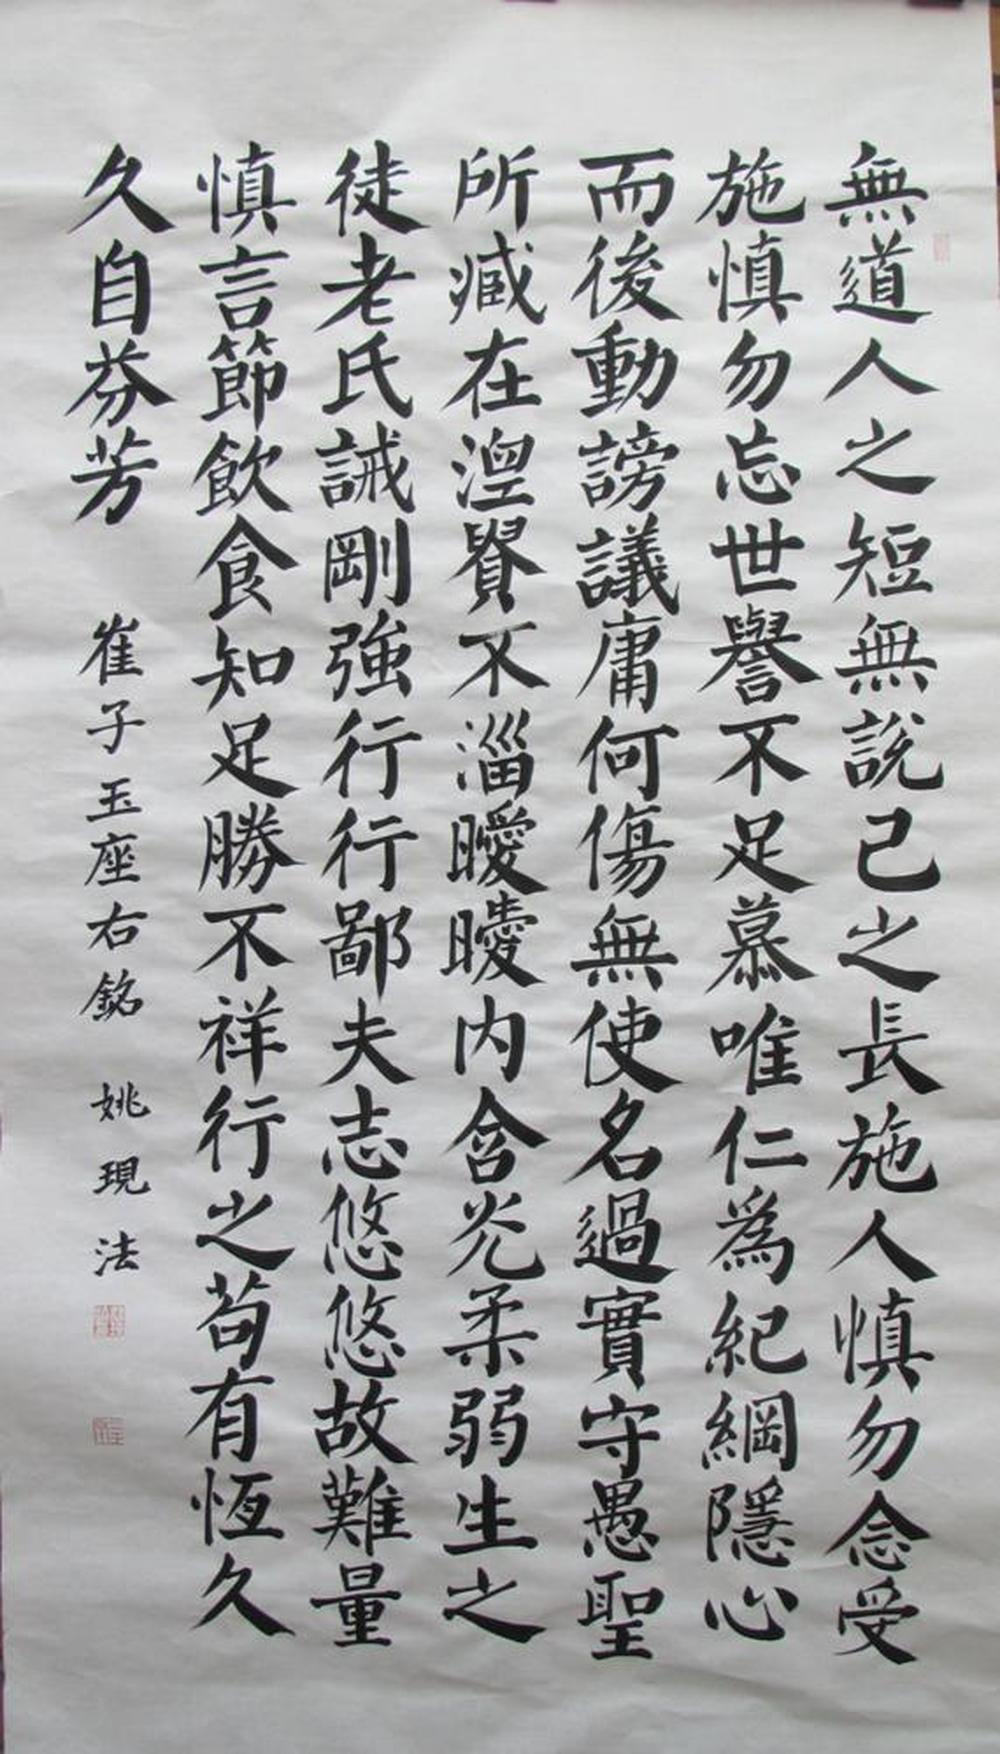 無道人之短無說己之長施人慎勿念受
施慎勿忘世譽不足慕唯仁為紀綱隱心
而後動謗議庸何傷無使名過實守愚聖
所臧在涅貴不淄曖曖内含光柔弱生之
徒老氏誡剛強行行鄙夫志悠悠故難量
慎言節飲食知足勝不祥行之苟有恆久
久自芬芳
崔子玉座右銘 姚現法